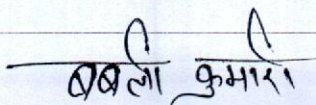 बबली कुमारी